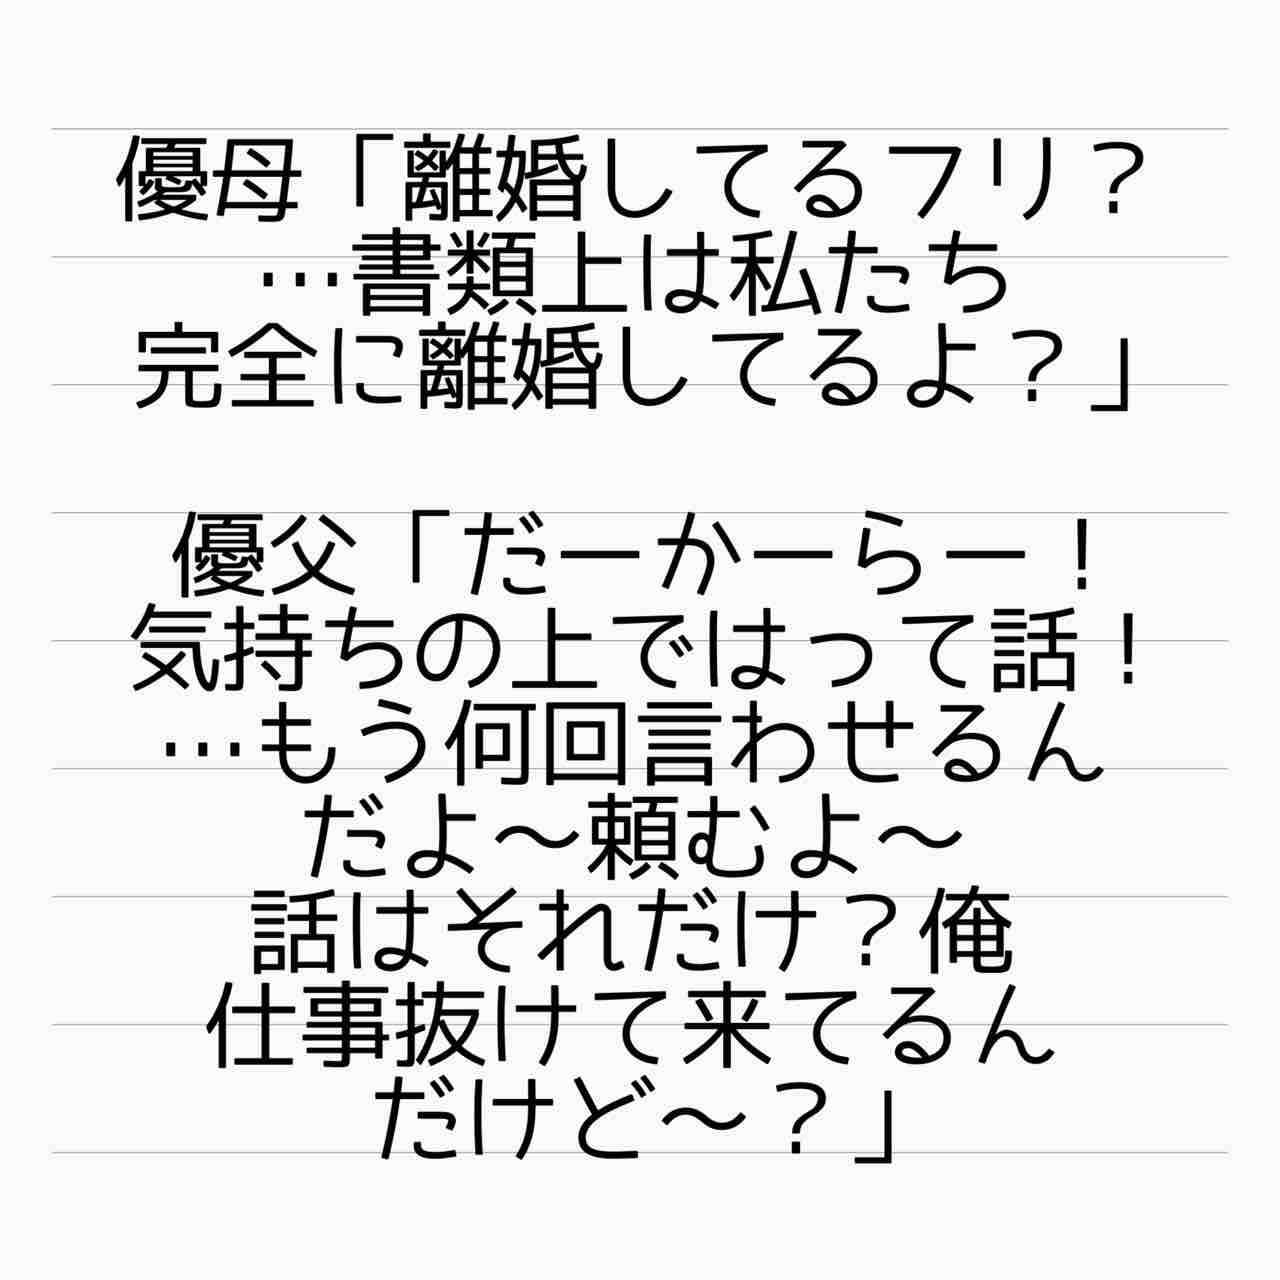 優母「離婚してるフリ？
…書類上は私たち
完全に離婚してるよ？」
優父「だーかーらー！
気持ちの上ではって話！
…もう何回言わせるん
だよ〜頼むよ〜
話はそれだけ？俺
仕事抜けて来てるん
だけど〜？」